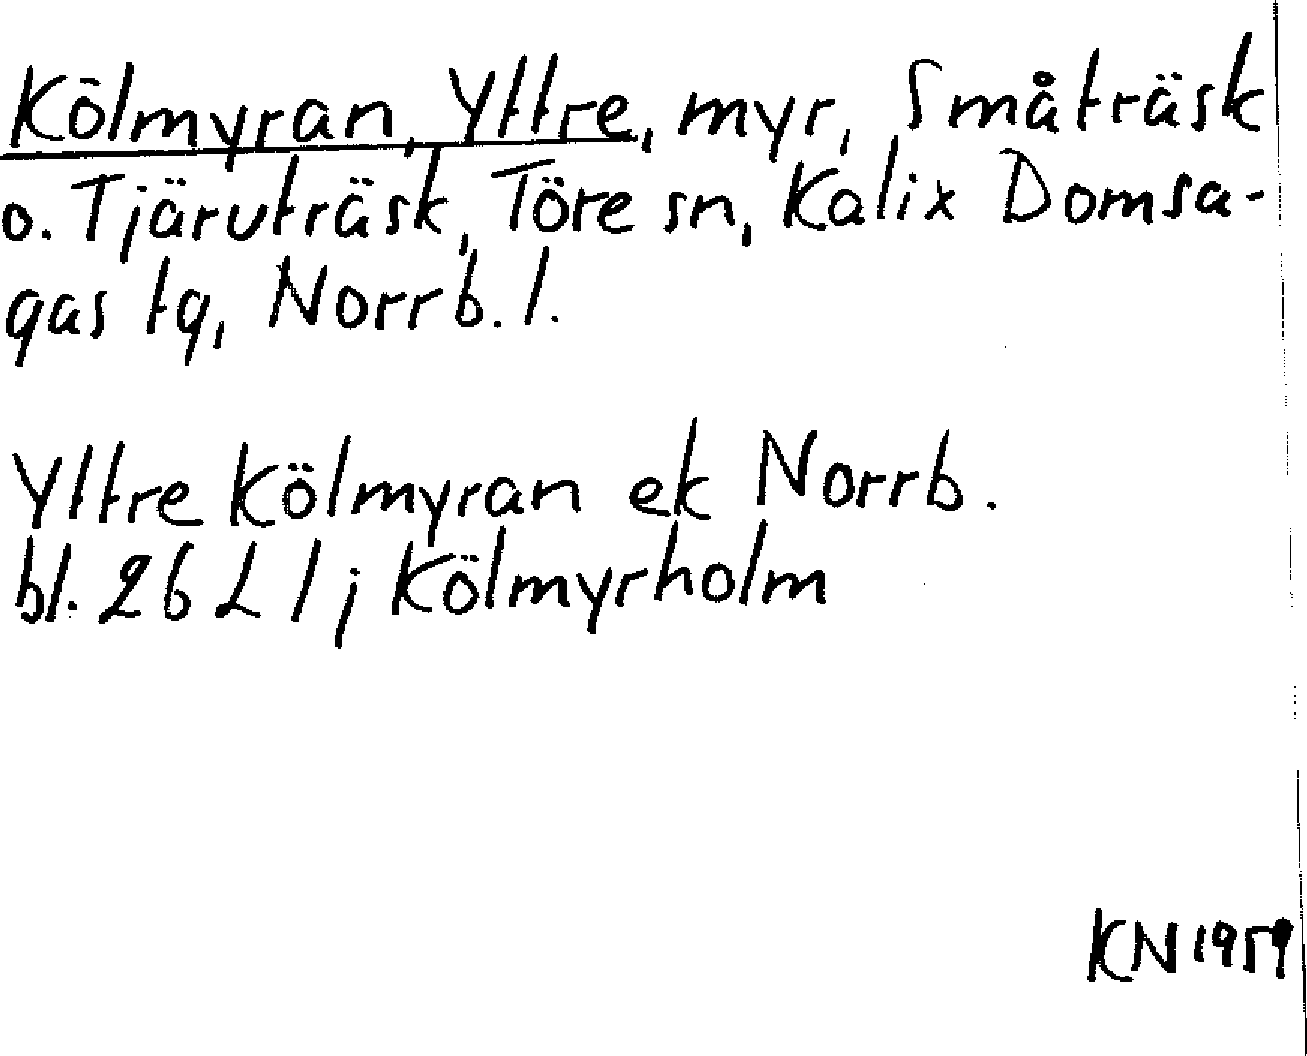 Kölmyran, Yttre, myr, Småträsk
o. Tjäruträsk, Töre sn, Kalix Domsa-
gas tg, Norrb. l.
Yttre Kölmyran ek Norrb.
bl. 26 L 1; Kölmyrholm
KN 1959